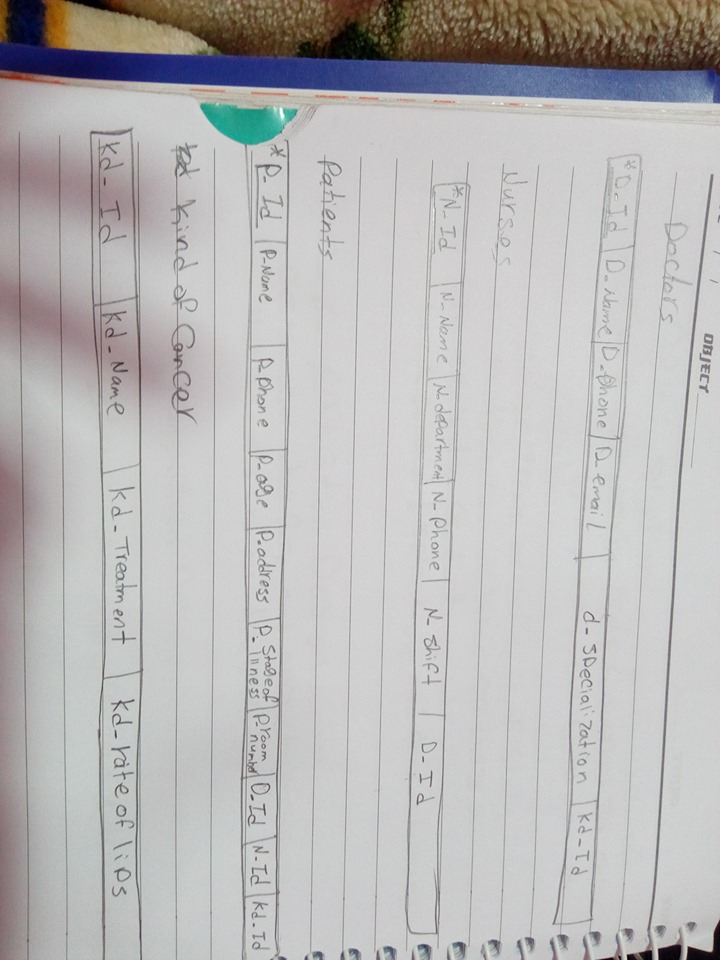 OBJECT
Doctors
*D-Id | D-Name | D-Phone | D-email | d-specialization | kd-Id
Nurses
*N-Id | N-Name | N-department | N-Phone | N-shift | D-Id
Patients
*P-Id | P-Name | P-Phone | P-age | P-address | P-stage of illness | P-room number | D-Id | N-Id | kd-Id
kd kind of Cancer
kd-Id | kd-Name | kd-Treatment | kd-rate of lips